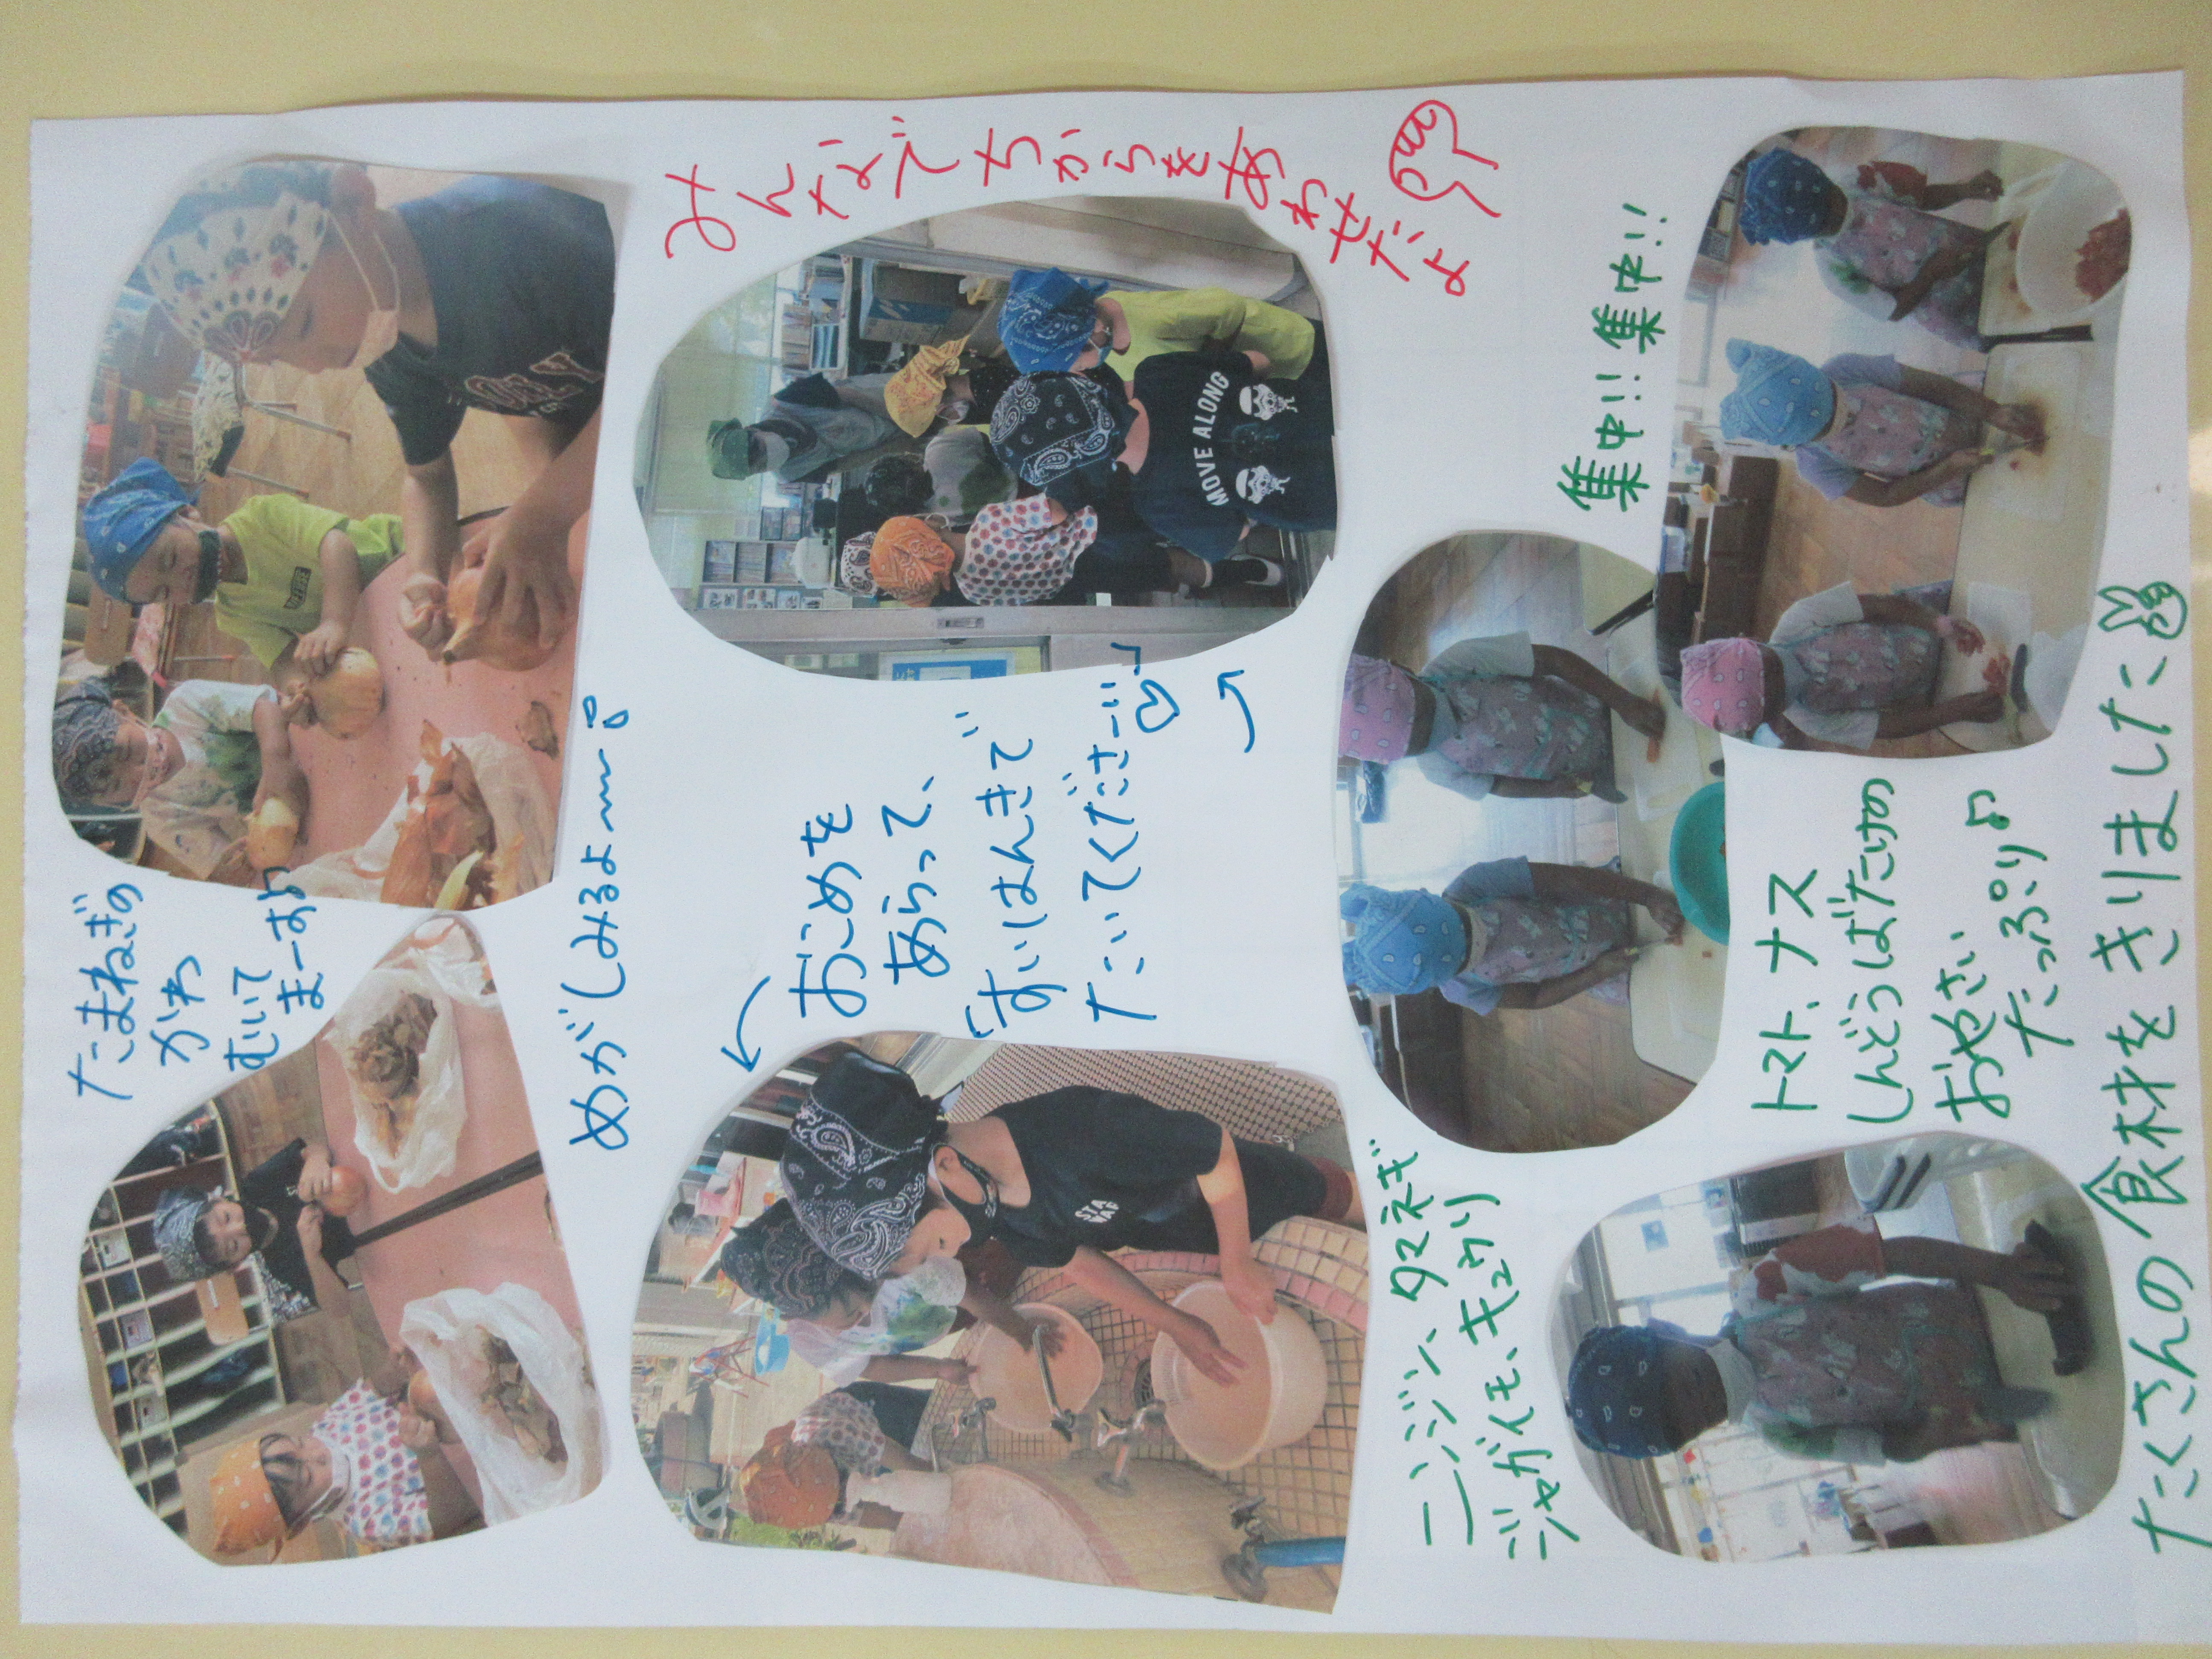 たまねぎの
かわ
むいて
まーす♪
めがしみるよ〜〜
みんなでちからをあわせだよ
おこめを
あらって、
「すいはんきで
たいてくださーい♡」
MOVE ALONG
集中!! 集中!!
ニンジン、タマネギ
ジャガイモ、キュウリ
トマト、ナス
しんどうばたけの
おやさい
たっぷり♪
たくさんの食材をきりました